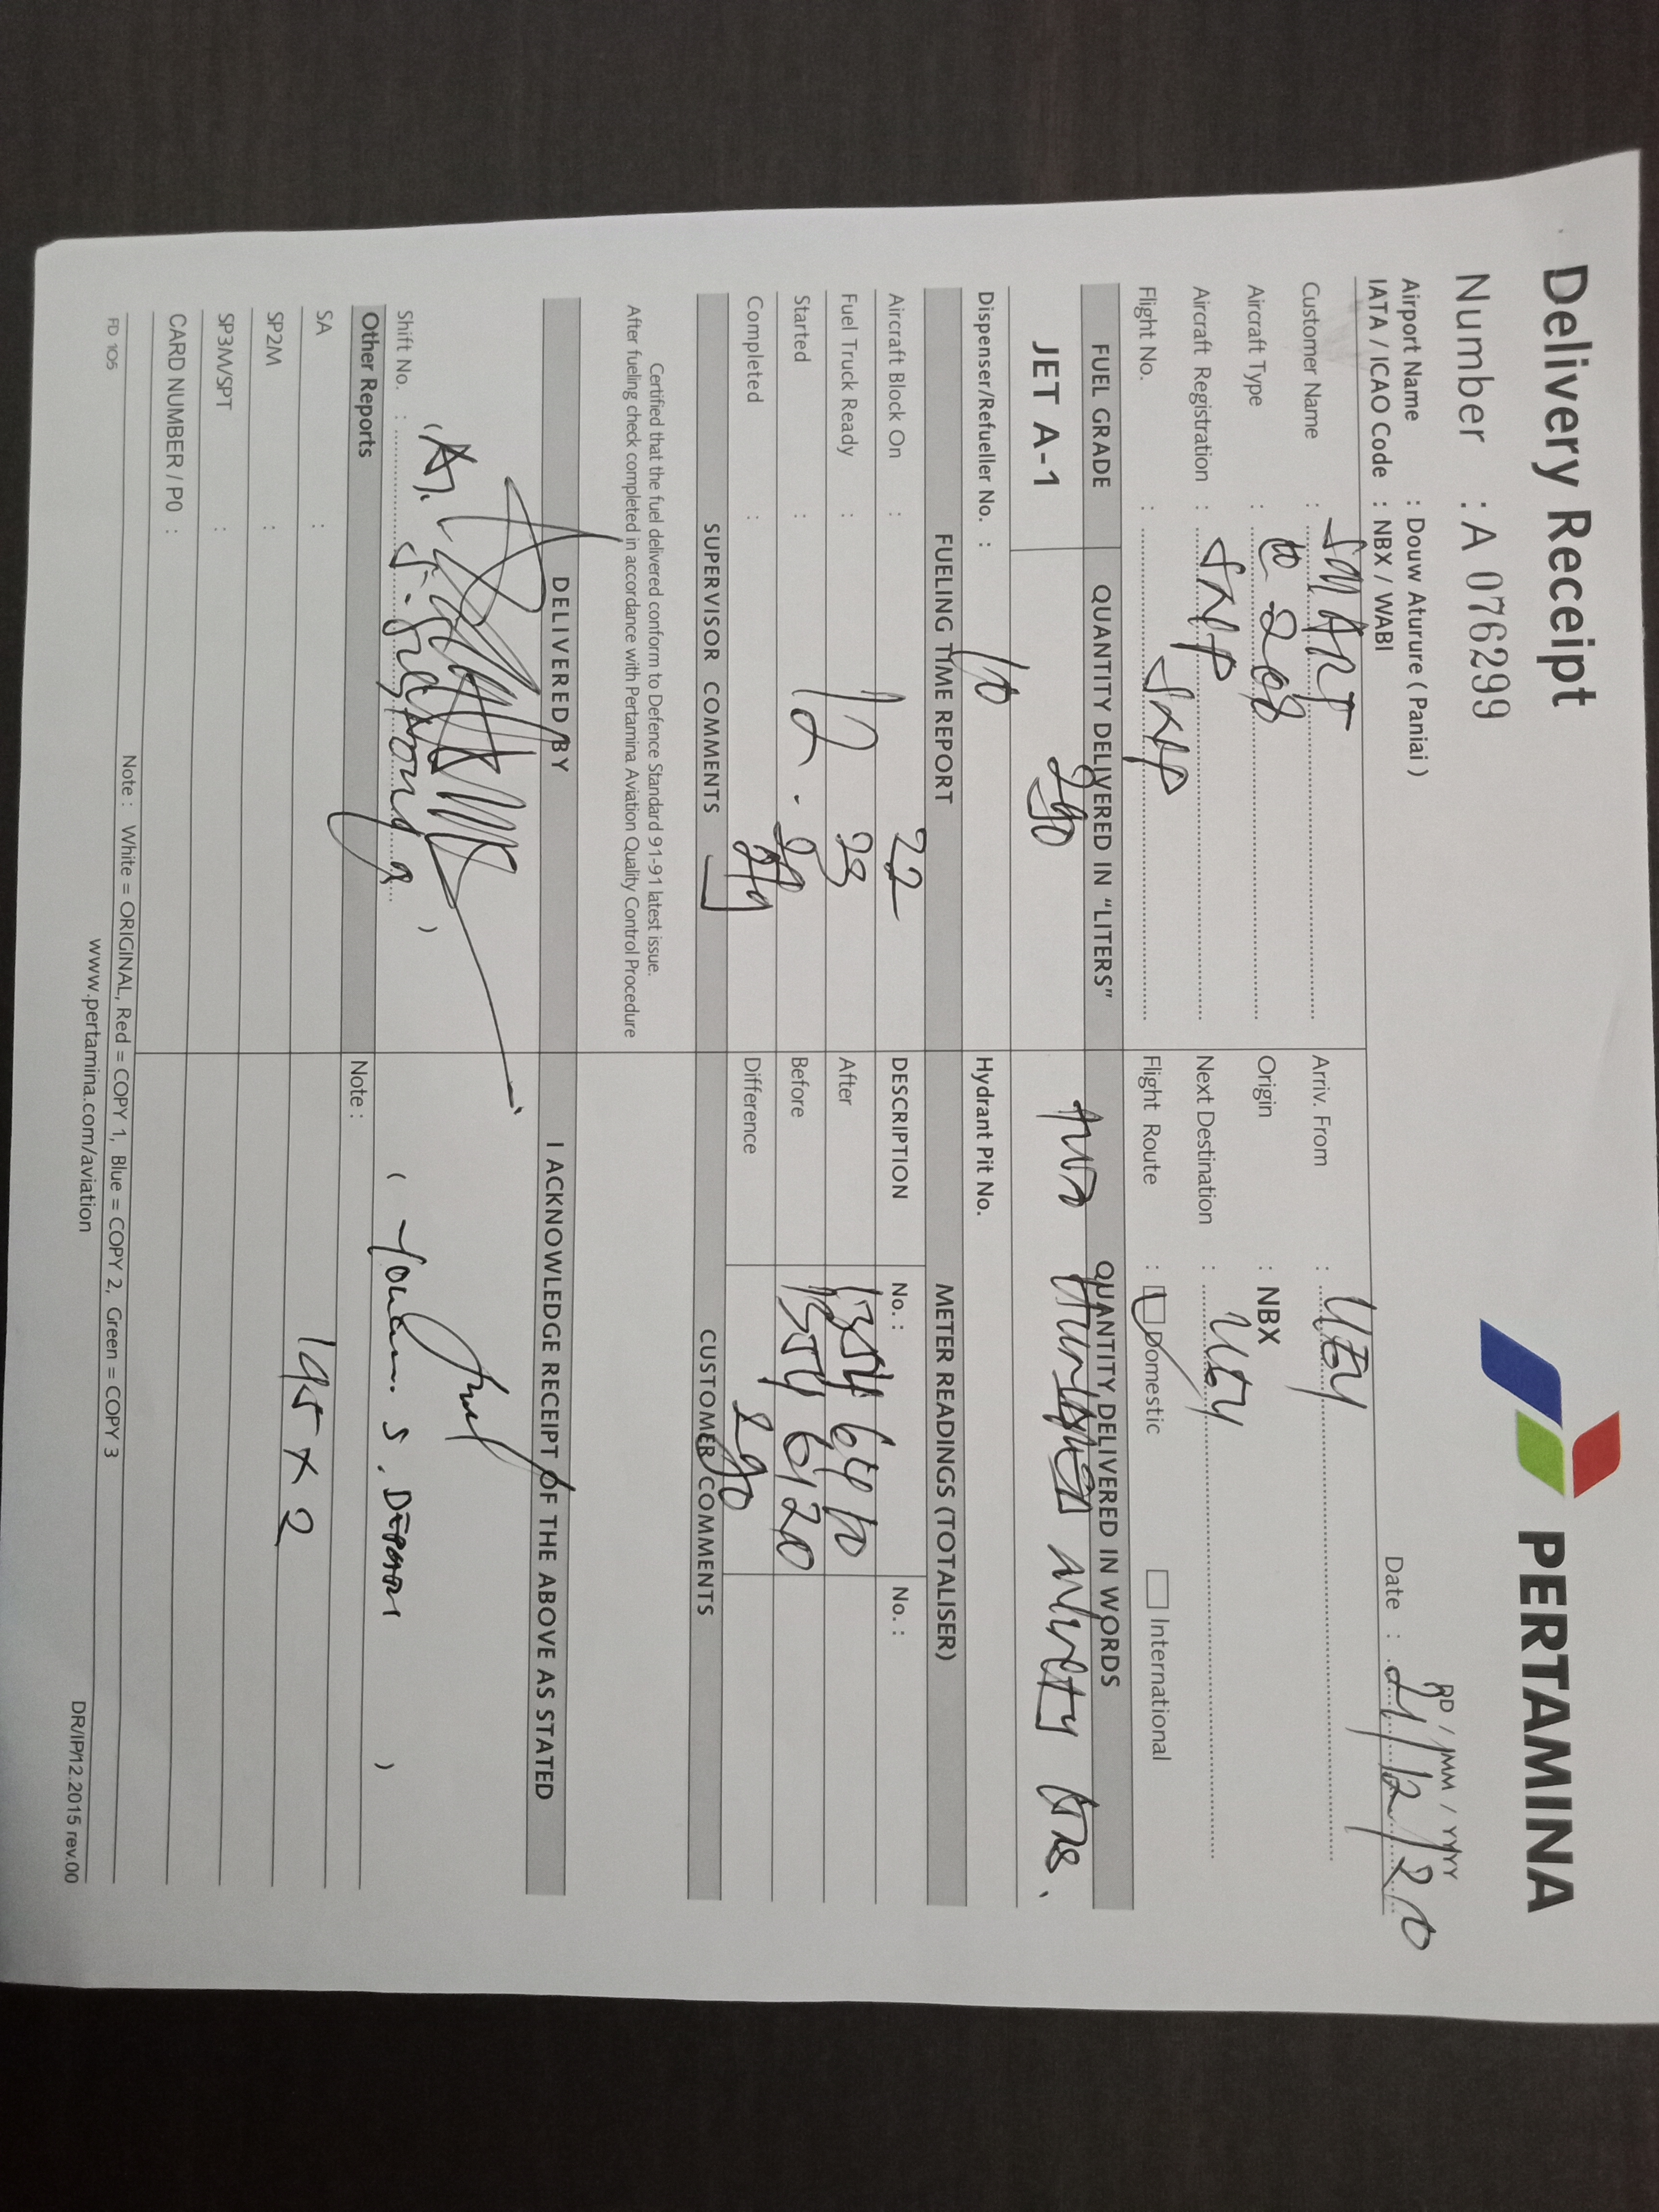 Delivery Receipt
PERTAMINA
Number : A 076299
DD / MM / YYYY
Date : 21/12/20
Airport Name : Douw Aturure ( Paniai )
IATA / ICAO Code : NBX / WABI
Customer Name : SMART
Arriv. From : UGY
Aircraft Type : 208
Origin : NBX
Aircraft Registration : SNP
Next Destination : UGY
Flight No. : SNP
Flight Route : Domestic International
FUEL GRADE QUANTITY DELIVERED IN "LITERS" QUANTITY DELIVERED IN WORDS
JET A-1 290 two Hundred ninety
Dispenser/Refueller No. : Hydrant Pit No.
FUELING TIME REPORT METER READINGS (TOTALISER)
Aircraft Block On : 22 DESCRIPTION No. : No. :
Fuel Truck Ready : 12 23 After 13546410
Started : 12 . Before 13546120
Completed : 29 Difference 290
SUPERVISOR COMMENTS CUSTOMER COMMENTS
Certified that the fuel delivered conform to Defence Standard 91-91 latest issue.
After fueling check completed in accordance with Pertamina Aviation Quality Control Procedure
DELIVERED BY I ACKNOWLEDGE RECEIPT OF THE ABOVE AS STATED
Shift No. :
Other Reports Note :
SA : 145 x 2
SP2M :
SP3M/SPT :
CARD NUMBER / PO :
Note : White = ORIGINAL, Red = COPY 1, Blue = COPY 2, Green = COPY 3
FD 105
www.pertamina.com/aviation
DR/IP/12.2015 rev.00